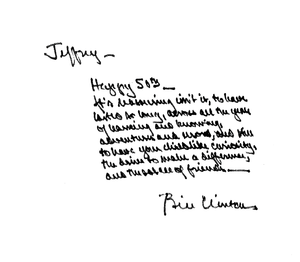 Jeffrey —
Happy 50th —
It's reassuring isn't it, to have
lasted so long, across all the years
of learning and knowing,
adventures and and still
to have your childlike curiosity,
the drive to make a difference,
and the solace of friends.
Bill Clinton